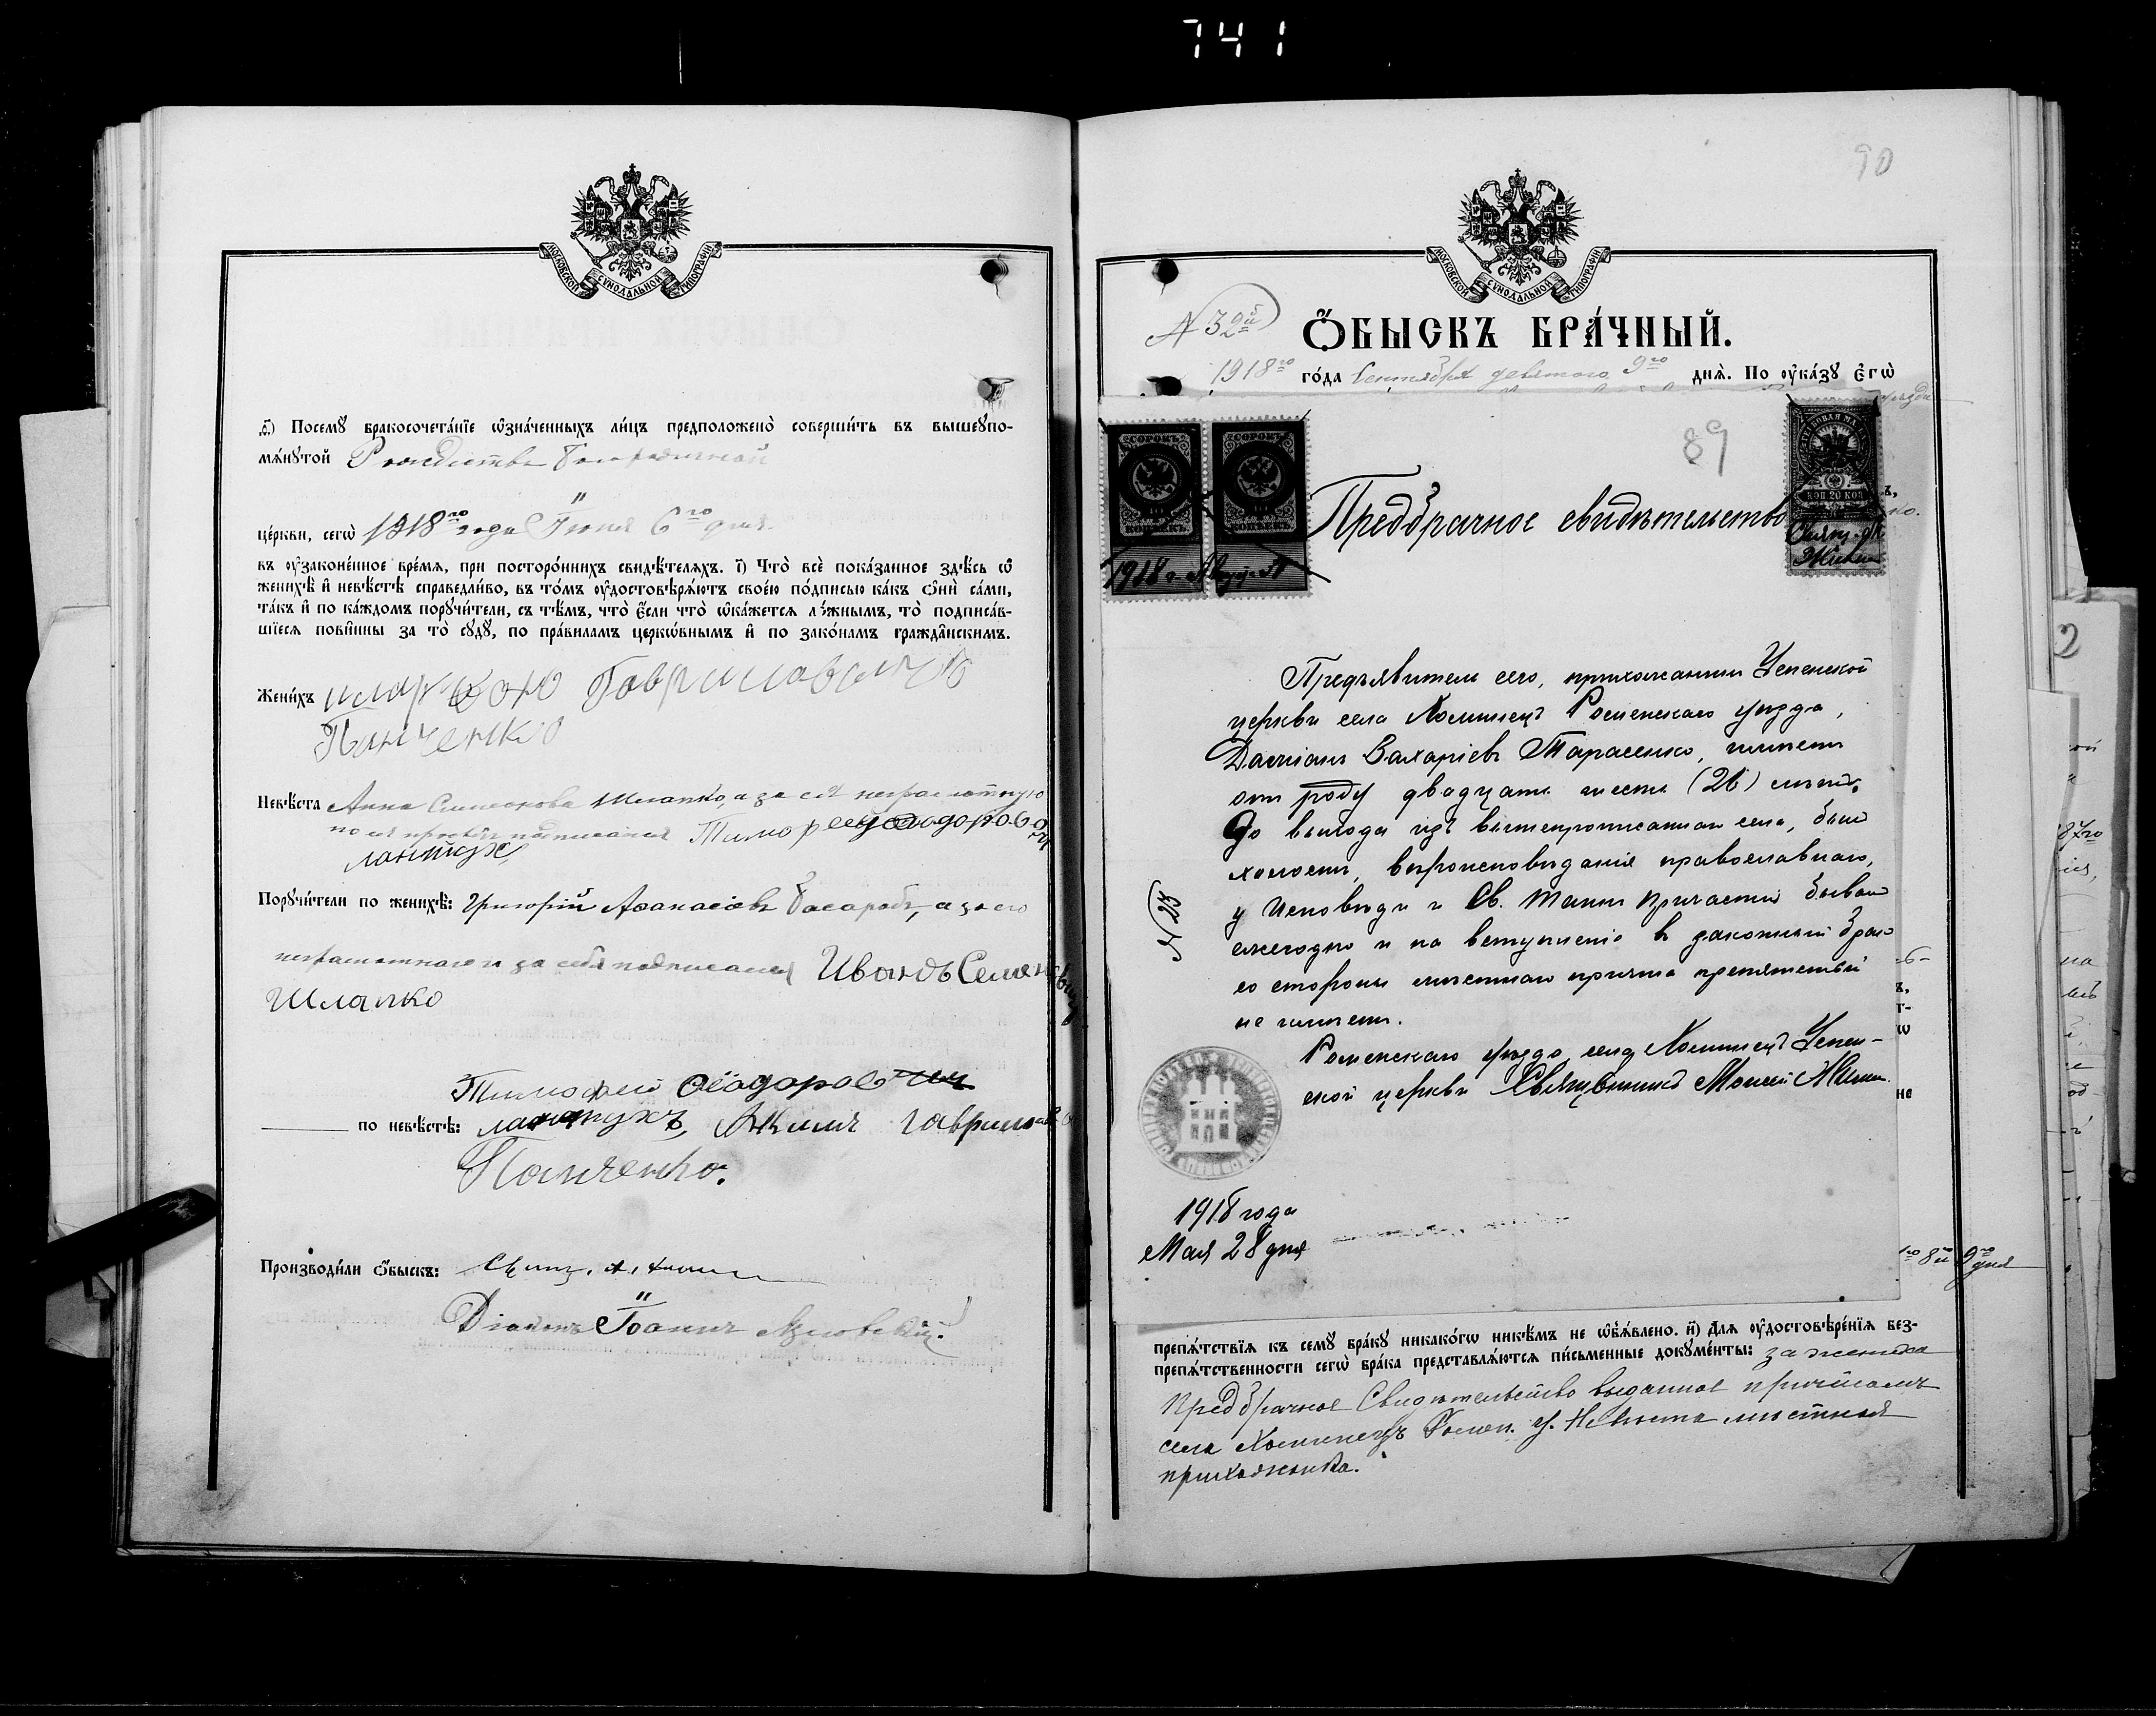 741
МОСКОВСКОЙ СѴНОДАЛЬНОЙ ТИПОГРАФІИ
Посемꙋ̀ бракосочета́нїе ѡ҆зна́ченныхъ ли́цъ предположено̀ соверши́ть въ вышеꙋпо-
мѧ́нꙋтой Рождества Богородичной
це́ркви, сегѡ̀ 1918го года Іюня 6го дня
въ оу҆зако́ненное вре́мѧ, при посторо́ннихъ свидѣ́телѧхъ. і҃) Что̀ всѐ пока́занное здѣ́сь ѡ҆
женихѣ̀ и҆ невѣ́стѣ справедли́во, въ то́мъ оу҆достовѣрѧ́ютъ свое́ю по́дписью ка́къ ѻ҆нѝ са́ми,
та́къ и҆ по ка́ждомъ порꙋчи́тели, съ тѣ́мъ, что̀ є҆́сли что̀ ѡ҆ка́жется ло́жнымъ, то̀ подписа́в-
шїеся пови́нны за то̀ сꙋдꙋ̀, по пра́виламъ церко́внымъ и҆ по зако́намъ гражда́нскимъ.
Жени́хъ Гаврилович
Панченко
Невѣ́ста Анна Симеонова Шлапко, а за ея неграмотную
по ея просьбѣ подписался Тимофей Феодорович
лантух
Порꙋчи́тели по женихѣ̀: Григорій Аѳанасіевъ Басарабъ, а за его
неграмотнаго и за себя подписался Иванъ Семеновичъ
Шлапко
Тимофей Феодорович
по невѣ́стѣ: лантухъ, Аким гаврилов
Панченко.
Производи́ли ѻ҆́быскъ: Свящ. А.
Діаконъ Іоаннъ
90
МОСКОВСКОЙ СѴНОДАЛЬНОЙ ТИПОГРАФІИ
N 32й
Ѻ҆́БЫСКЪ БРА́ЧНЫЙ.
1918го го́да Сентября девятаго 9го днѧ̀. По оу҆ка́зꙋ Є҆гѡ̀
89
СОРОКЪ
КОПѢЕКЪ
СОРОКЪ
КОПѢЕКЪ
1918 г. Август
КОП. 20 КОП
Предбрачное свидѣтельство
Предъявитель сего, прихожанинъ Успенской
церкви села Хоминецъ Роменскаго уѣзда,
Даміанъ Захаріевъ Тарасенко, имѣетъ
отъ роду двадцать шесть (26) лѣтъ.
До выхода изъ вышепрописаннаго села, былъ
холостъ, вѣроисповѣданія православнаго,
у Исповѣди и Св. Таинъ Причастія бывалъ
ежегодно и на вступленіе въ законный бракъ
со стороны мѣстнаго причта препятствій
не имѣетъ.
N 25
Роменскаго уѣзда, села Хоминецъ Успен-
ской церкви Священникъ Моисей
1918 года
Мая 28 дня
го 8й 9го
дня
препѧ́тствїя къ семꙋ̀ бра́кꙋ никако́гѡ никѣ́мъ не ѡ҆б̾ѧ́влено. и҃) Длѧ оу҆достовѣре́нїя без-
препѧ́тственности сегѡ̀ бра́ка представлѧ́ются пи́сьменные докꙋме́нты: за жениха
Предбрачное Свидѣтельство выданное причтомъ
села Хоминецъ Ромен. у. Невѣста мѣстная
прихожанка.